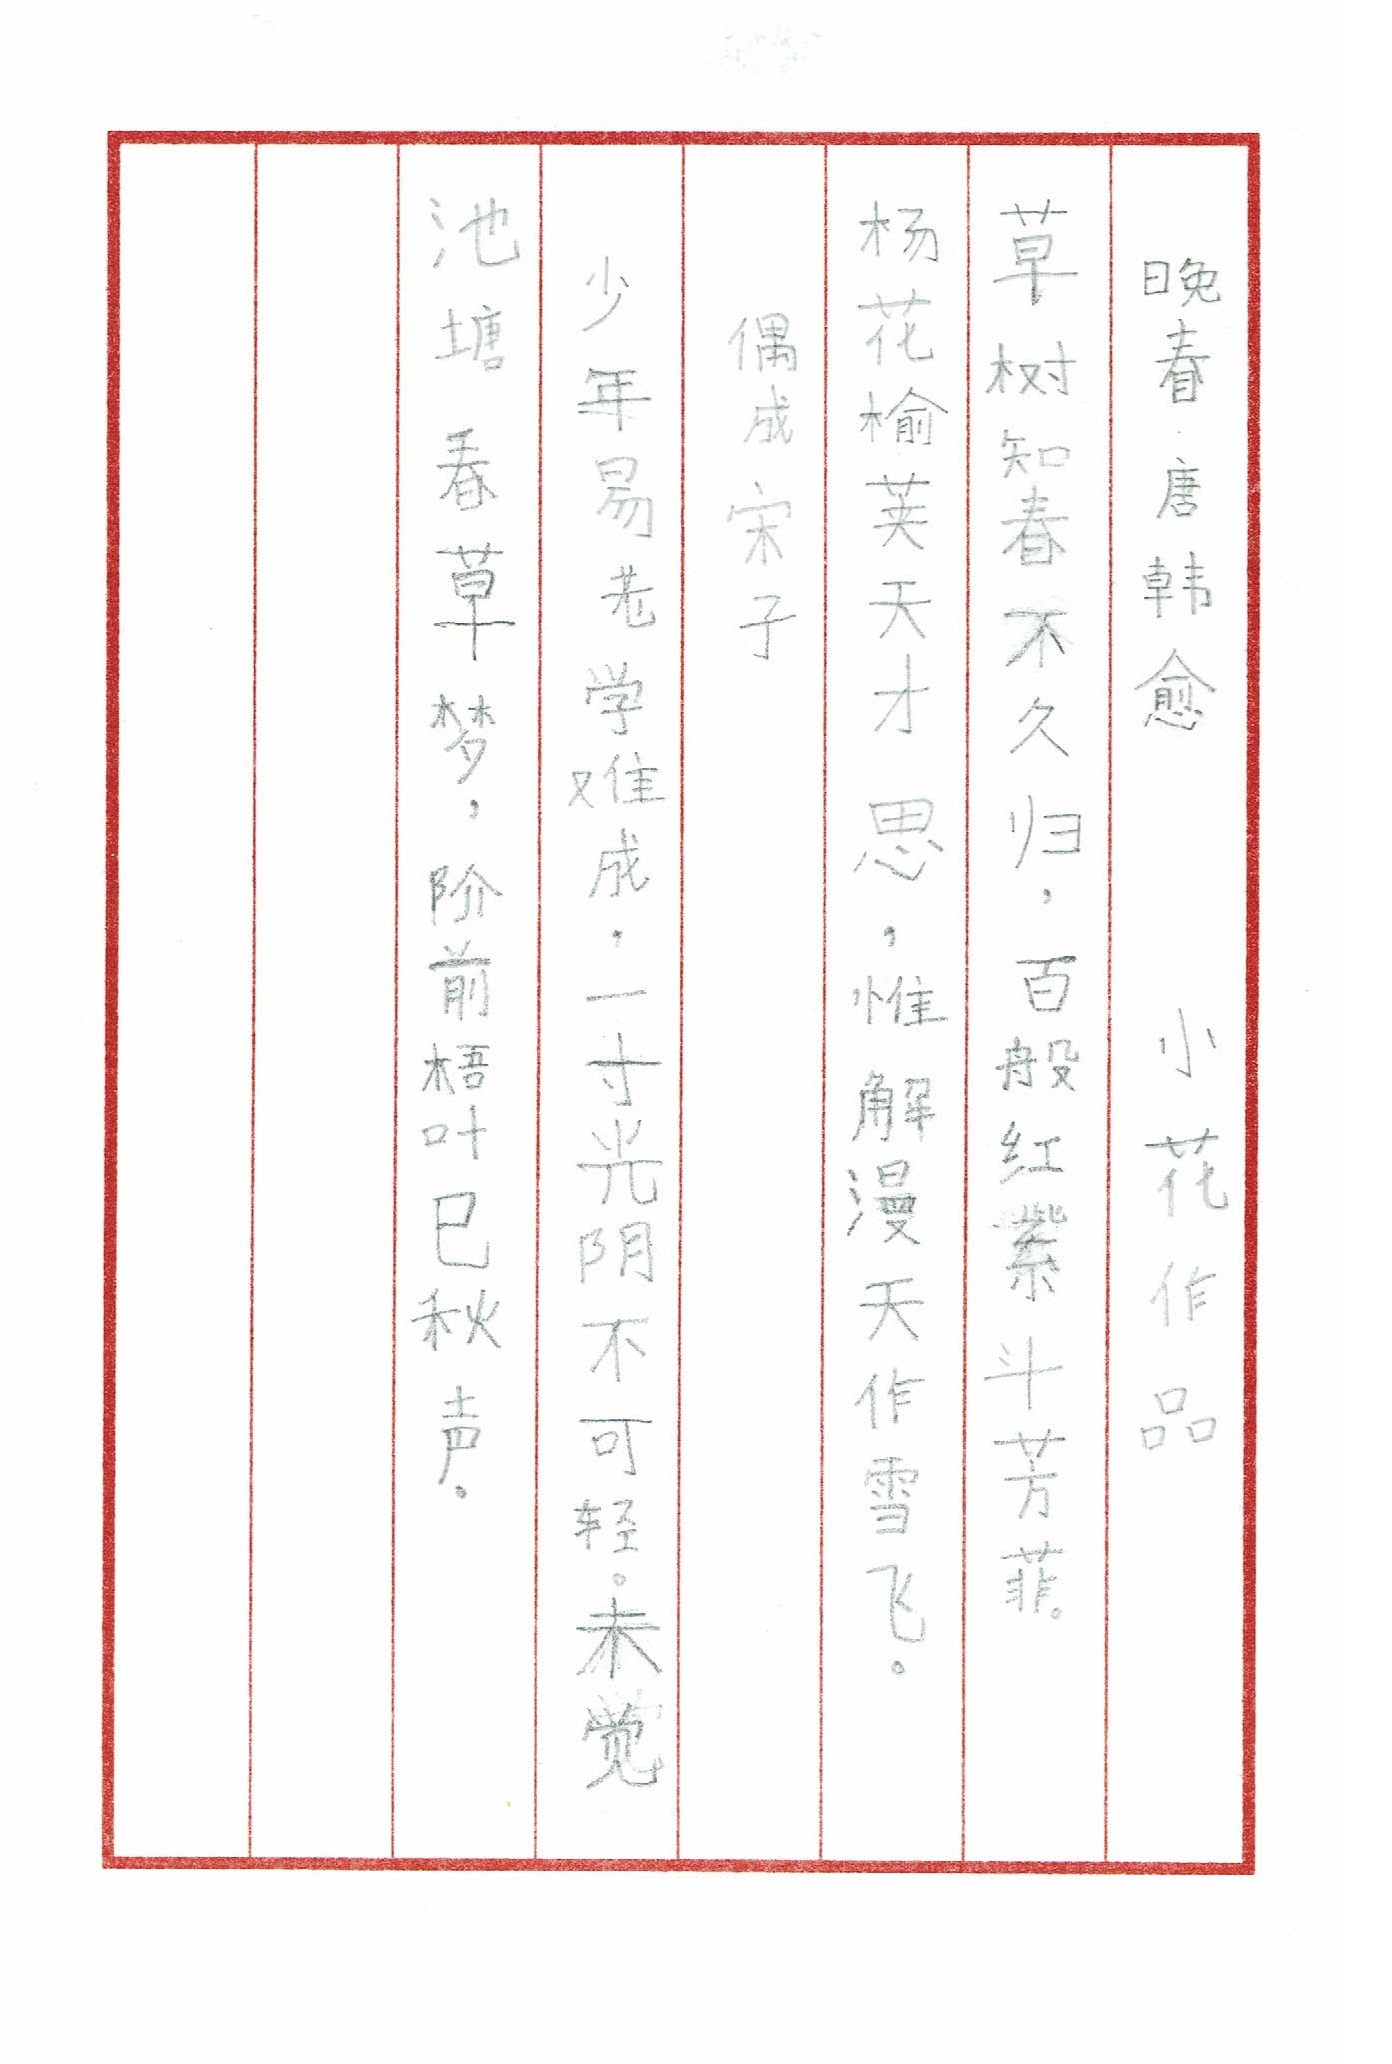 晚春·唐韩愈 小花作品
草树知春不久归，百般红紫斗芳菲。
杨花榆荚天才思，惟解漫天作雪飞。
偶成宋子
少年易老学难成，一寸光阴不可轻。未觉
池塘春草梦，阶前梧叶已秋声。